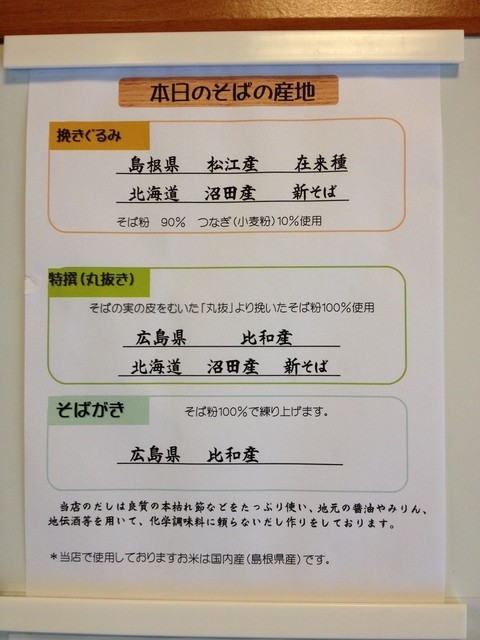 本日のそばの産地
挽きぐるみ
島根県 松江産 在来種
北海道 沼田産 新そば
そば粉 90% つなぎ(小麦粉)10%使用
特撰(丸抜き)
そばの実の皮をむいた「丸抜」より挽いたそば粉100%使用
広島県 比和産
北海道 沼田産 新そば
そばがき
そば粉100%で練り上げます。
広島県 比和産
当店のだしは良質の本枯れ節などをたっぷり使い、地元の醤油やみりん、
地伝酒等を用いて、化学調味料に頼らないだし作りをしております。
*当店で使用しておりますお米は国内産(島根県産)です。